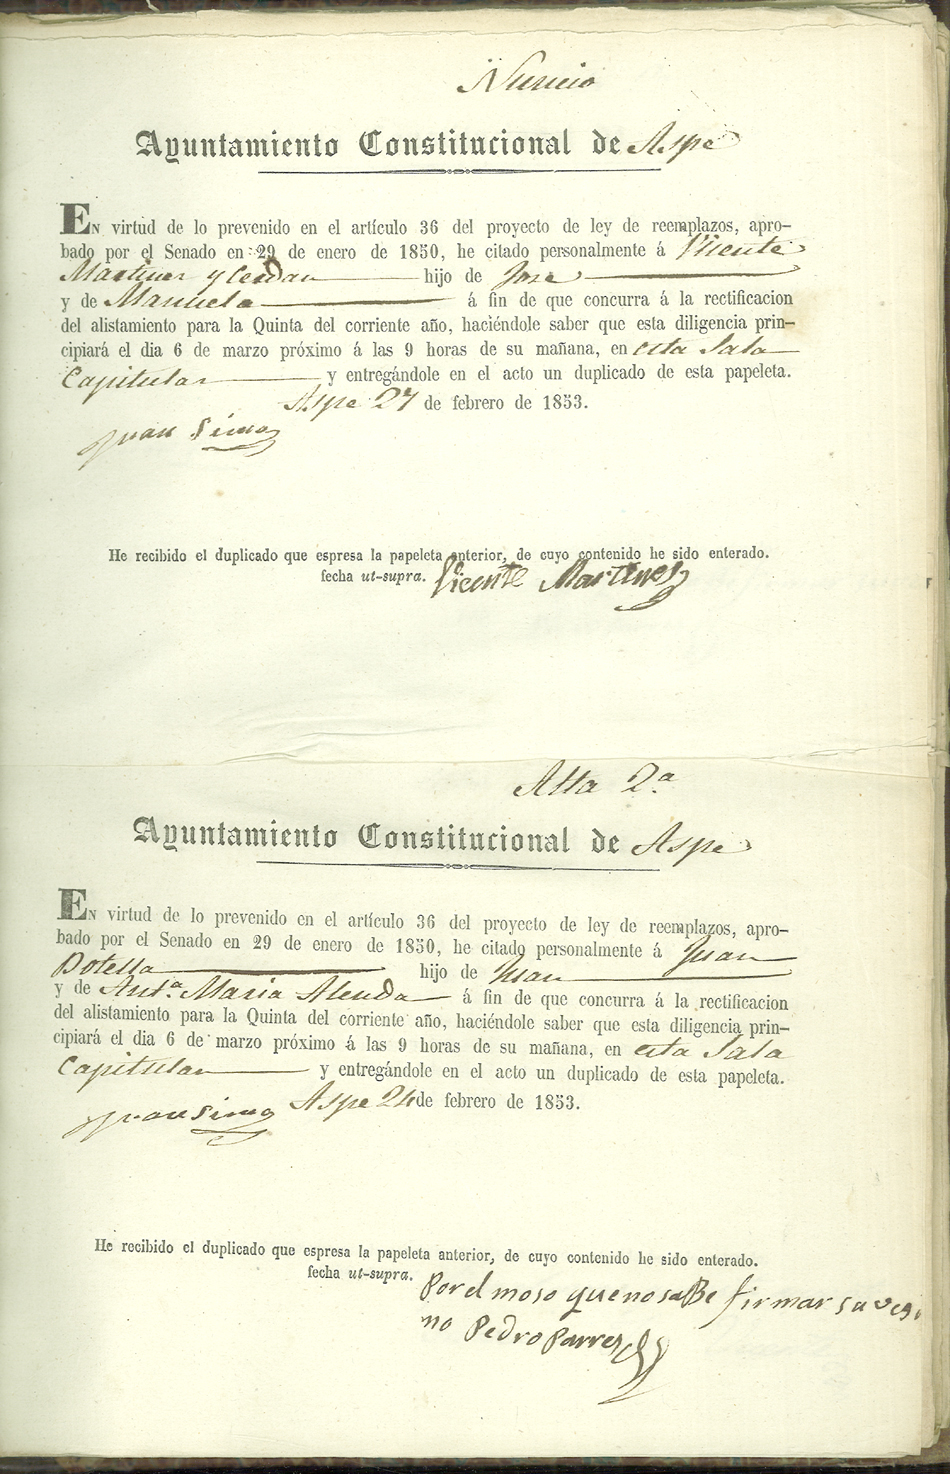 Nuncio
Ayuntamiento Constitucional de Aspe
En virtud de lo prevenido en el artículo 36 del proyecto de ley de reemplazos, apro-
bado por el Senado en 29 de enero de 1850, he citado personalmente á Vicente
Martinez y Cerdan hijo de Jose
y de Manuela á fin de que concurra á la rectificacion
del alistamiento para la Quinta del corriente año, haciéndole saber que esta diligencia prin-
cipiará el dia 6 de marzo próximo á las 9 horas de su mañana, en esta Sala
Capitular y entregándole en el acto un duplicado de esta papeleta.
Aspe 27 de febrero de 1853.
Juan Simo
He recibido el duplicado que espresa la papeleta anterior, de cuyo contenido he sido enterado.
fecha ut-supra. Vicente Martines
Alta 2.a
Ayuntamiento Constitucional de Aspe
En virtud de lo prevenido en el artículo 36 del proyecto de ley de reemplazos, apro-
bado por el Senado en 29 de enero de 1850, he citado personalmente á Juan
Botella hijo de Juan
y de Ant.a Maria Alenda á fin de que concurra á la rectificacion
del alistamiento para la Quinta del corriente año, haciéndole saber que esta diligencia prin-
cipiará el dia 6 de marzo próximo á las 9 horas de su mañana, en esta Sala
Capitular y entregándole en el acto un duplicado de esta papeleta.
Aspe 24 de febrero de 1853.
Juan Simo
He recibido el duplicado que espresa la papeleta anterior, de cuyo contenido he sido enterado.
fecha ut-supra. Por el moso que no saBe firmar su vesi
no Pedro Parres